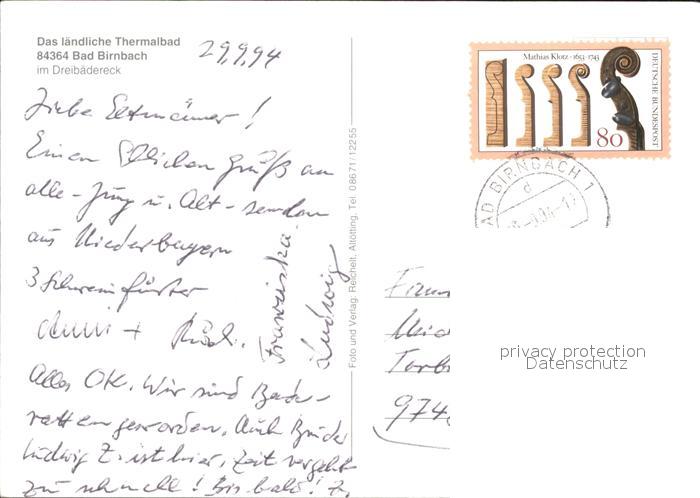 Das ländliche Thermalbad
84364 Bad Birnbach
im Dreibädereck
29.9.94
Liebe Eltmänner!
Einen Gruß an
alle - Jung u. Alt - senden
aus Niederbayern
3 Schweinfurter
+ Rud.
Franziska
Ludwig
Alles OK. Wir sind Bade-
ratten geworden. Auch Bruder
Ludwig Z. ist hier, Zeit vergeht
zu schnell! Bis bald! Z.
Foto und Verlag: Reichelt, Altötting, Tel. 08671/12255
Mathias Klotz · 1653-1743
80
DEUTSCHE BUNDESPOST
AD BIRNBACH 1
d
Torb
974
privacy protection
Datenschutz